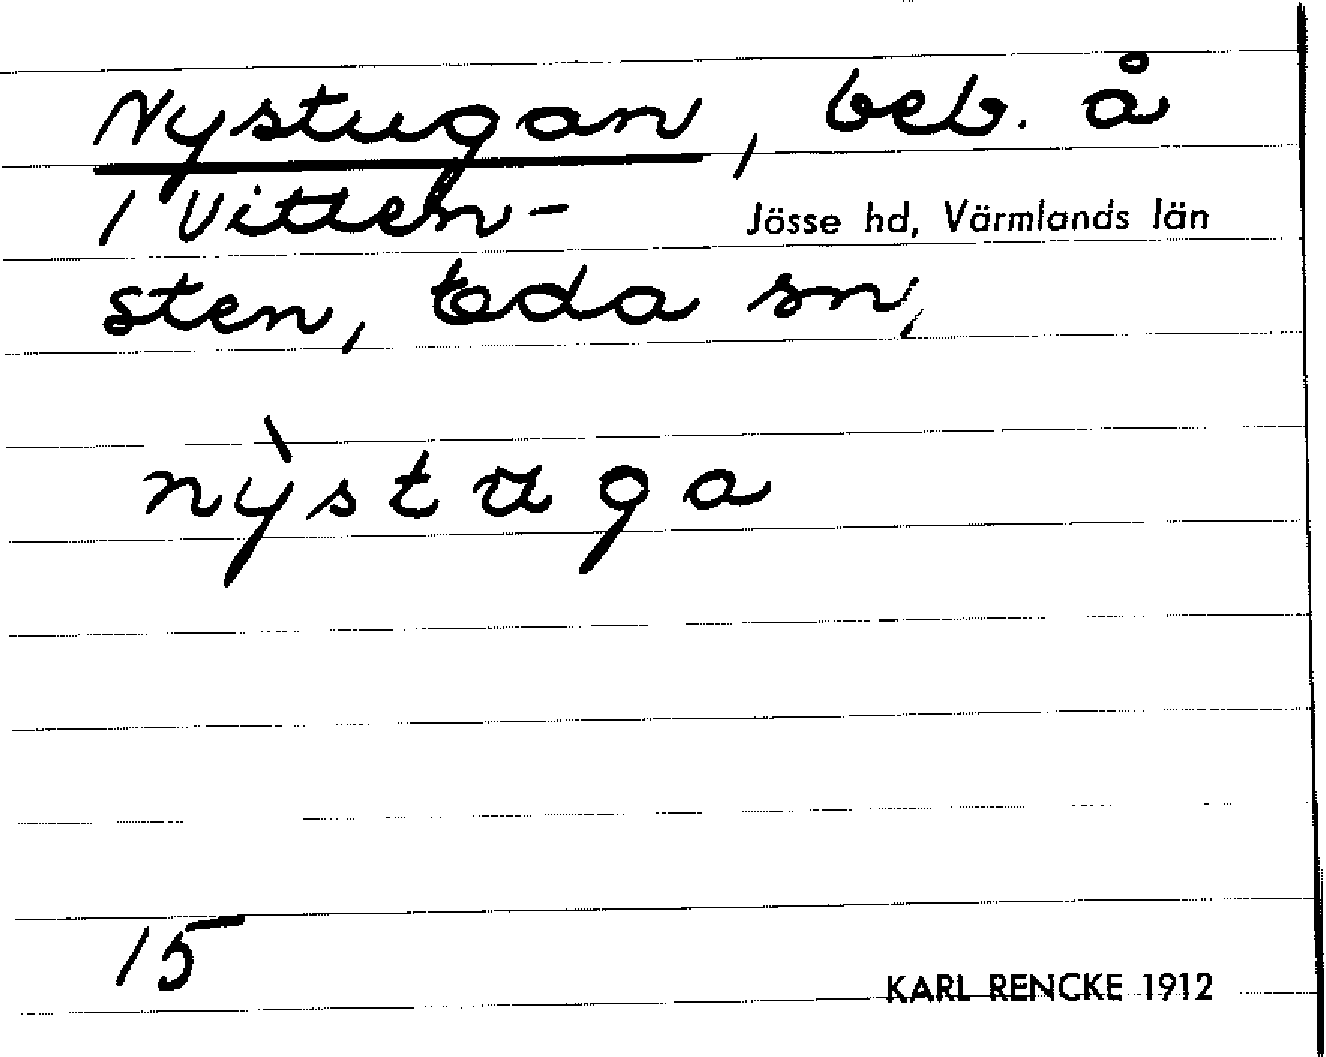 Nystugan, beb. å
1 Vitten-
Jösse hd, Värmlands län
sten, Eda sn,
nỳstuga
15
KARL RENCKE 1912